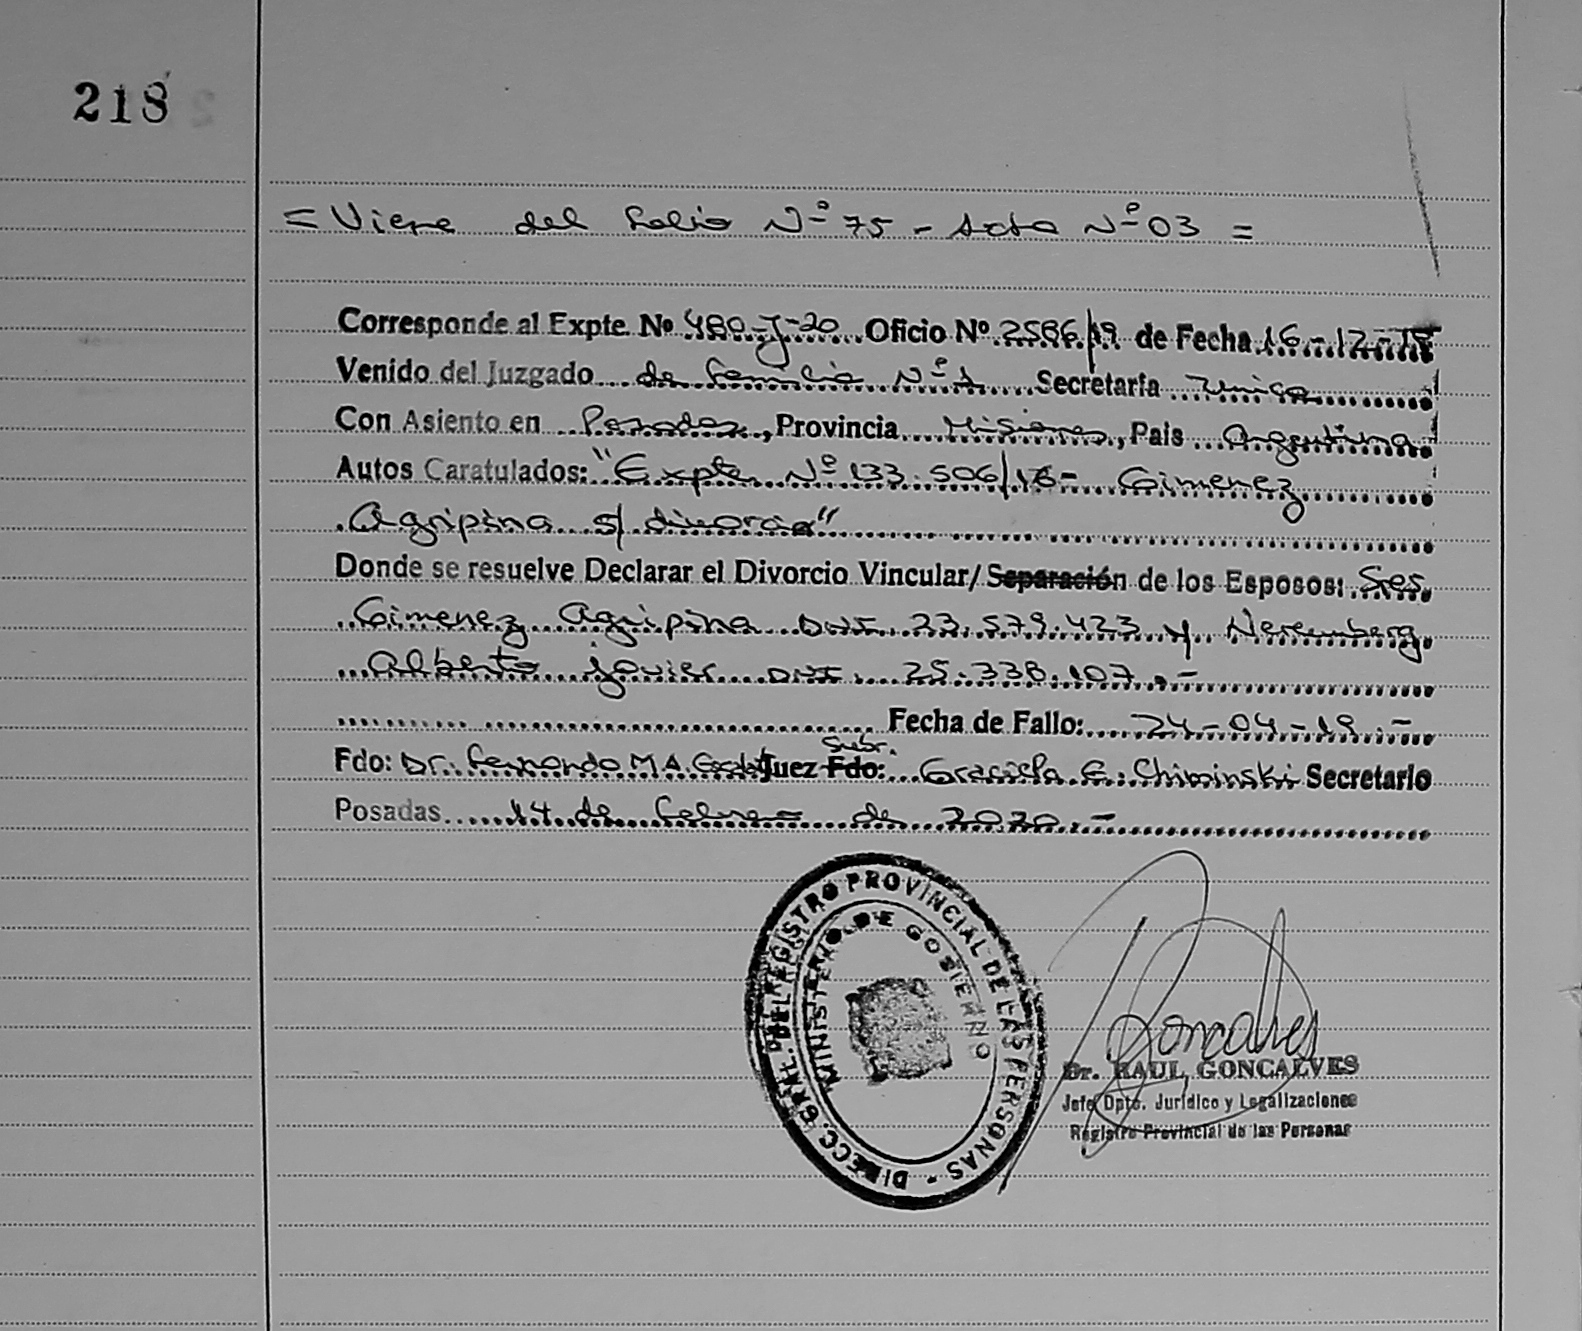 218
= Viene del folio Nº 75 - Acta Nº 03 =
Corresponde al Expte. Nº 480-J-20 Oficio Nº 2586/19 de Fecha 16-12-19
Venido del Juzgado de familia Nº 1 Secretaría Unica
Con Asiento en Posadas, Provincia Misiones, Pais Argentina
Autos Caratulados: "Expte Nº 133.506/16- Gimenez
Agripina s/ divorcio"
Donde se resuelve Declarar el Divorcio Vincular/ Separación de los Esposos: Sres
Gimenez Agripina DNI 23.579.423 y Neremberg
Alberto javier DNI 25.338.107.-
Fecha de Fallo: 24-04-19.-
Subr.
Fdo: Dr. Fernando M A Juez Fdo: Graciela E. Secretario
Posadas 14 de febrero de 2020.-
DIRECC. GRAL. DEL REGISTRO PROVINCIAL DE LAS PERSONAS -
MINISTERIO DE GOBIERNO
Goncalves
Dr. RAUL GONCALVES
Jefe Dpto. Jurídico y Legalizaciones
Registro Provincial de las Personas